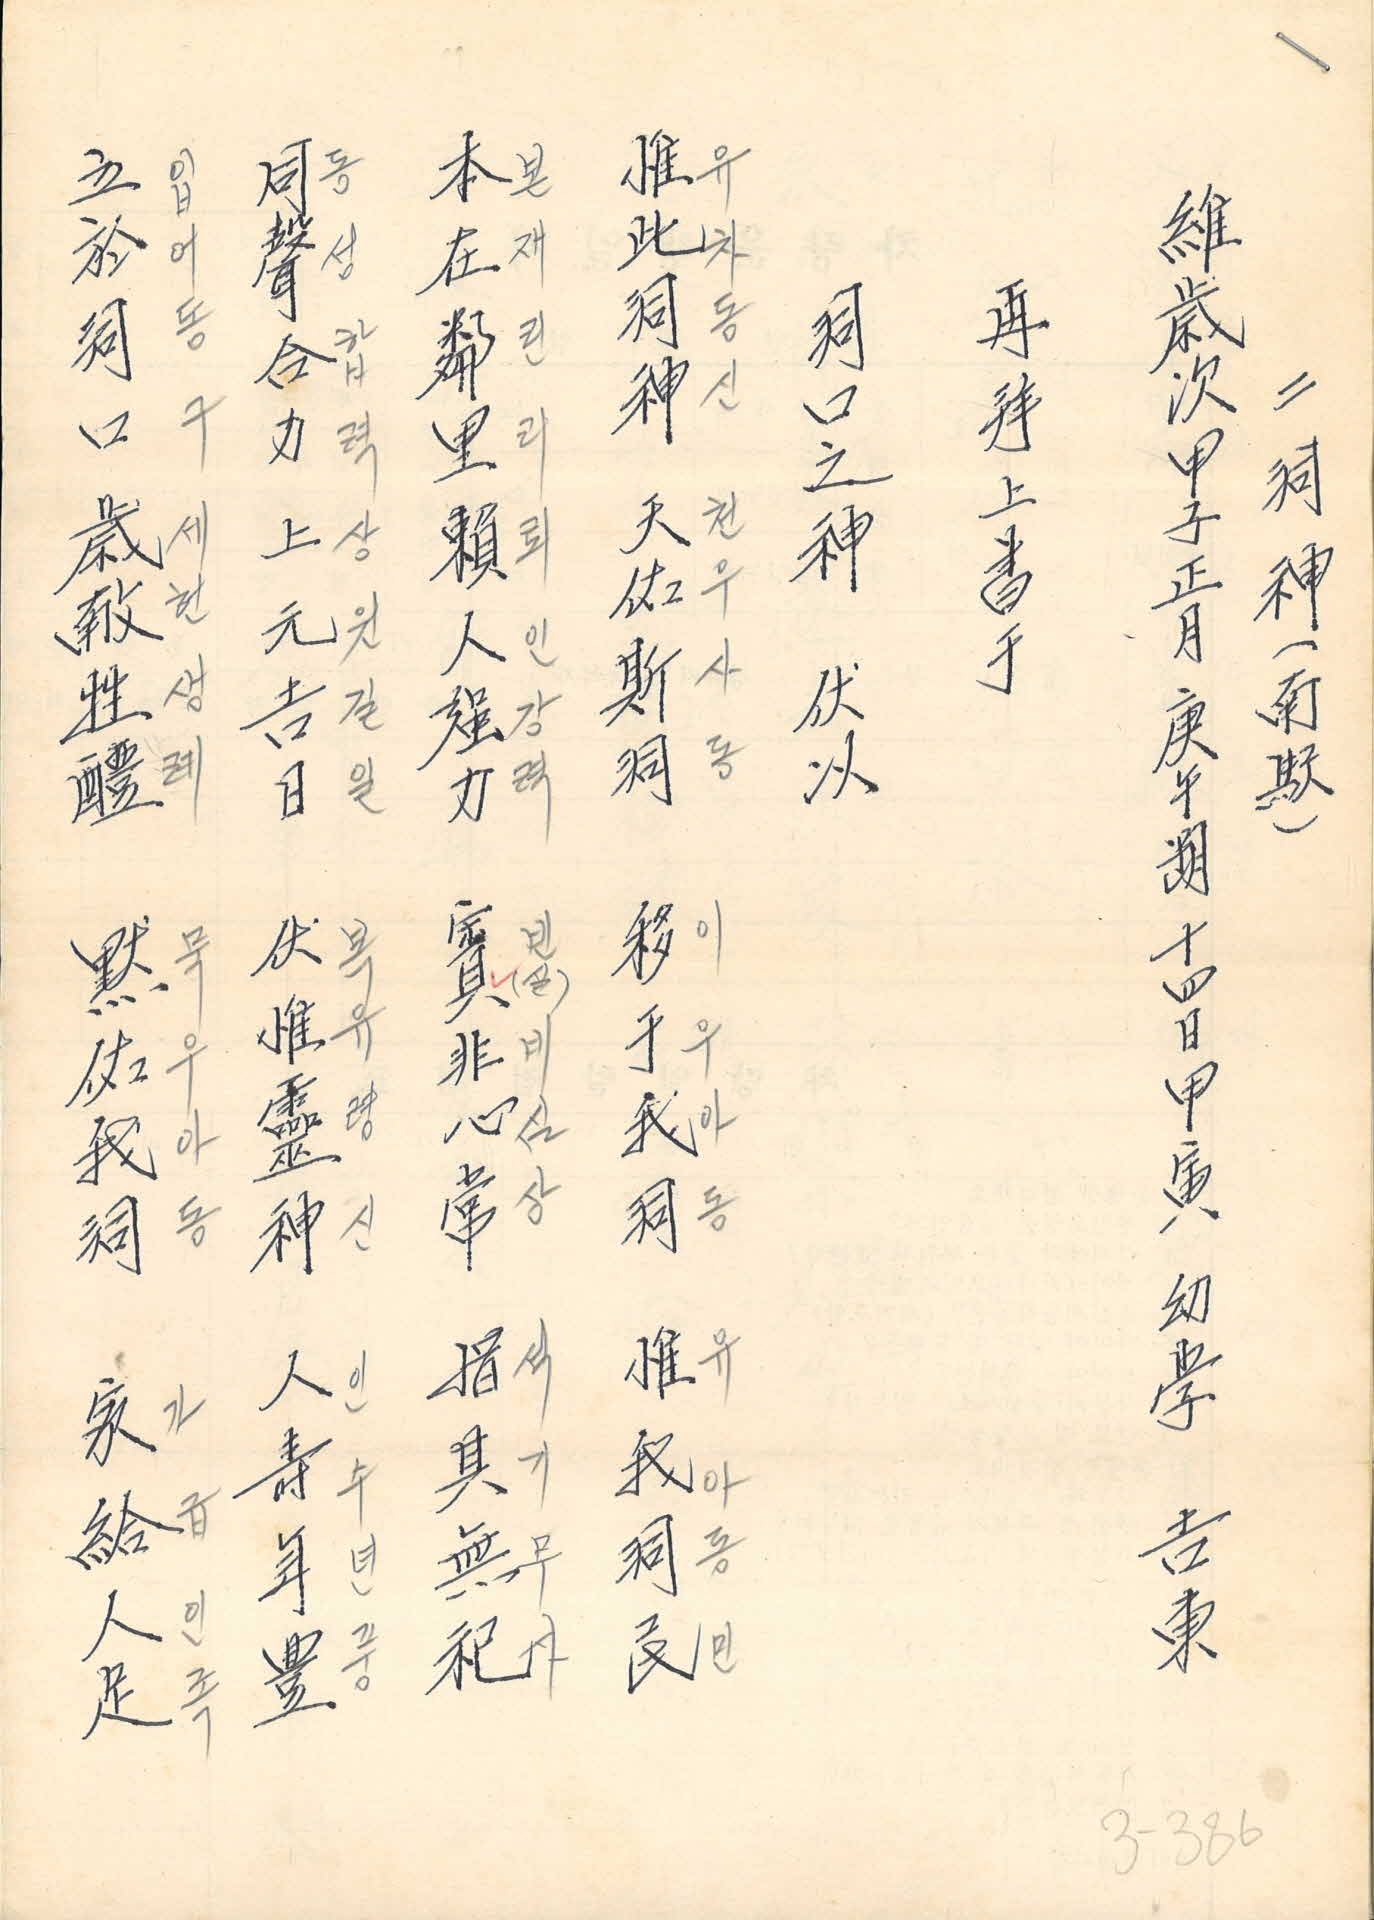 二洞神(南默)
維歲次甲子正月庚午朔十四日甲寅 幼學 吉東
再拜上書于
洞口之神 伏以
惟此洞神 天佑斯洞 移于我洞 惟我洞民
유차동신 천우사동 이우아동 유아동민
本在鄰里賴人强力 賓非心常 措其無祀
본재린리뢰인강력 빈(실)비심상 석기무사
同聲合力上元吉日 伏惟靈神 人壽年豐
동성합력상원길일 복유령신 인수년풍
立於洞口 歲敢牲醴 默佑我洞 家給人足
입어동구 세헌생례 묵우아동 가급인족
3-386